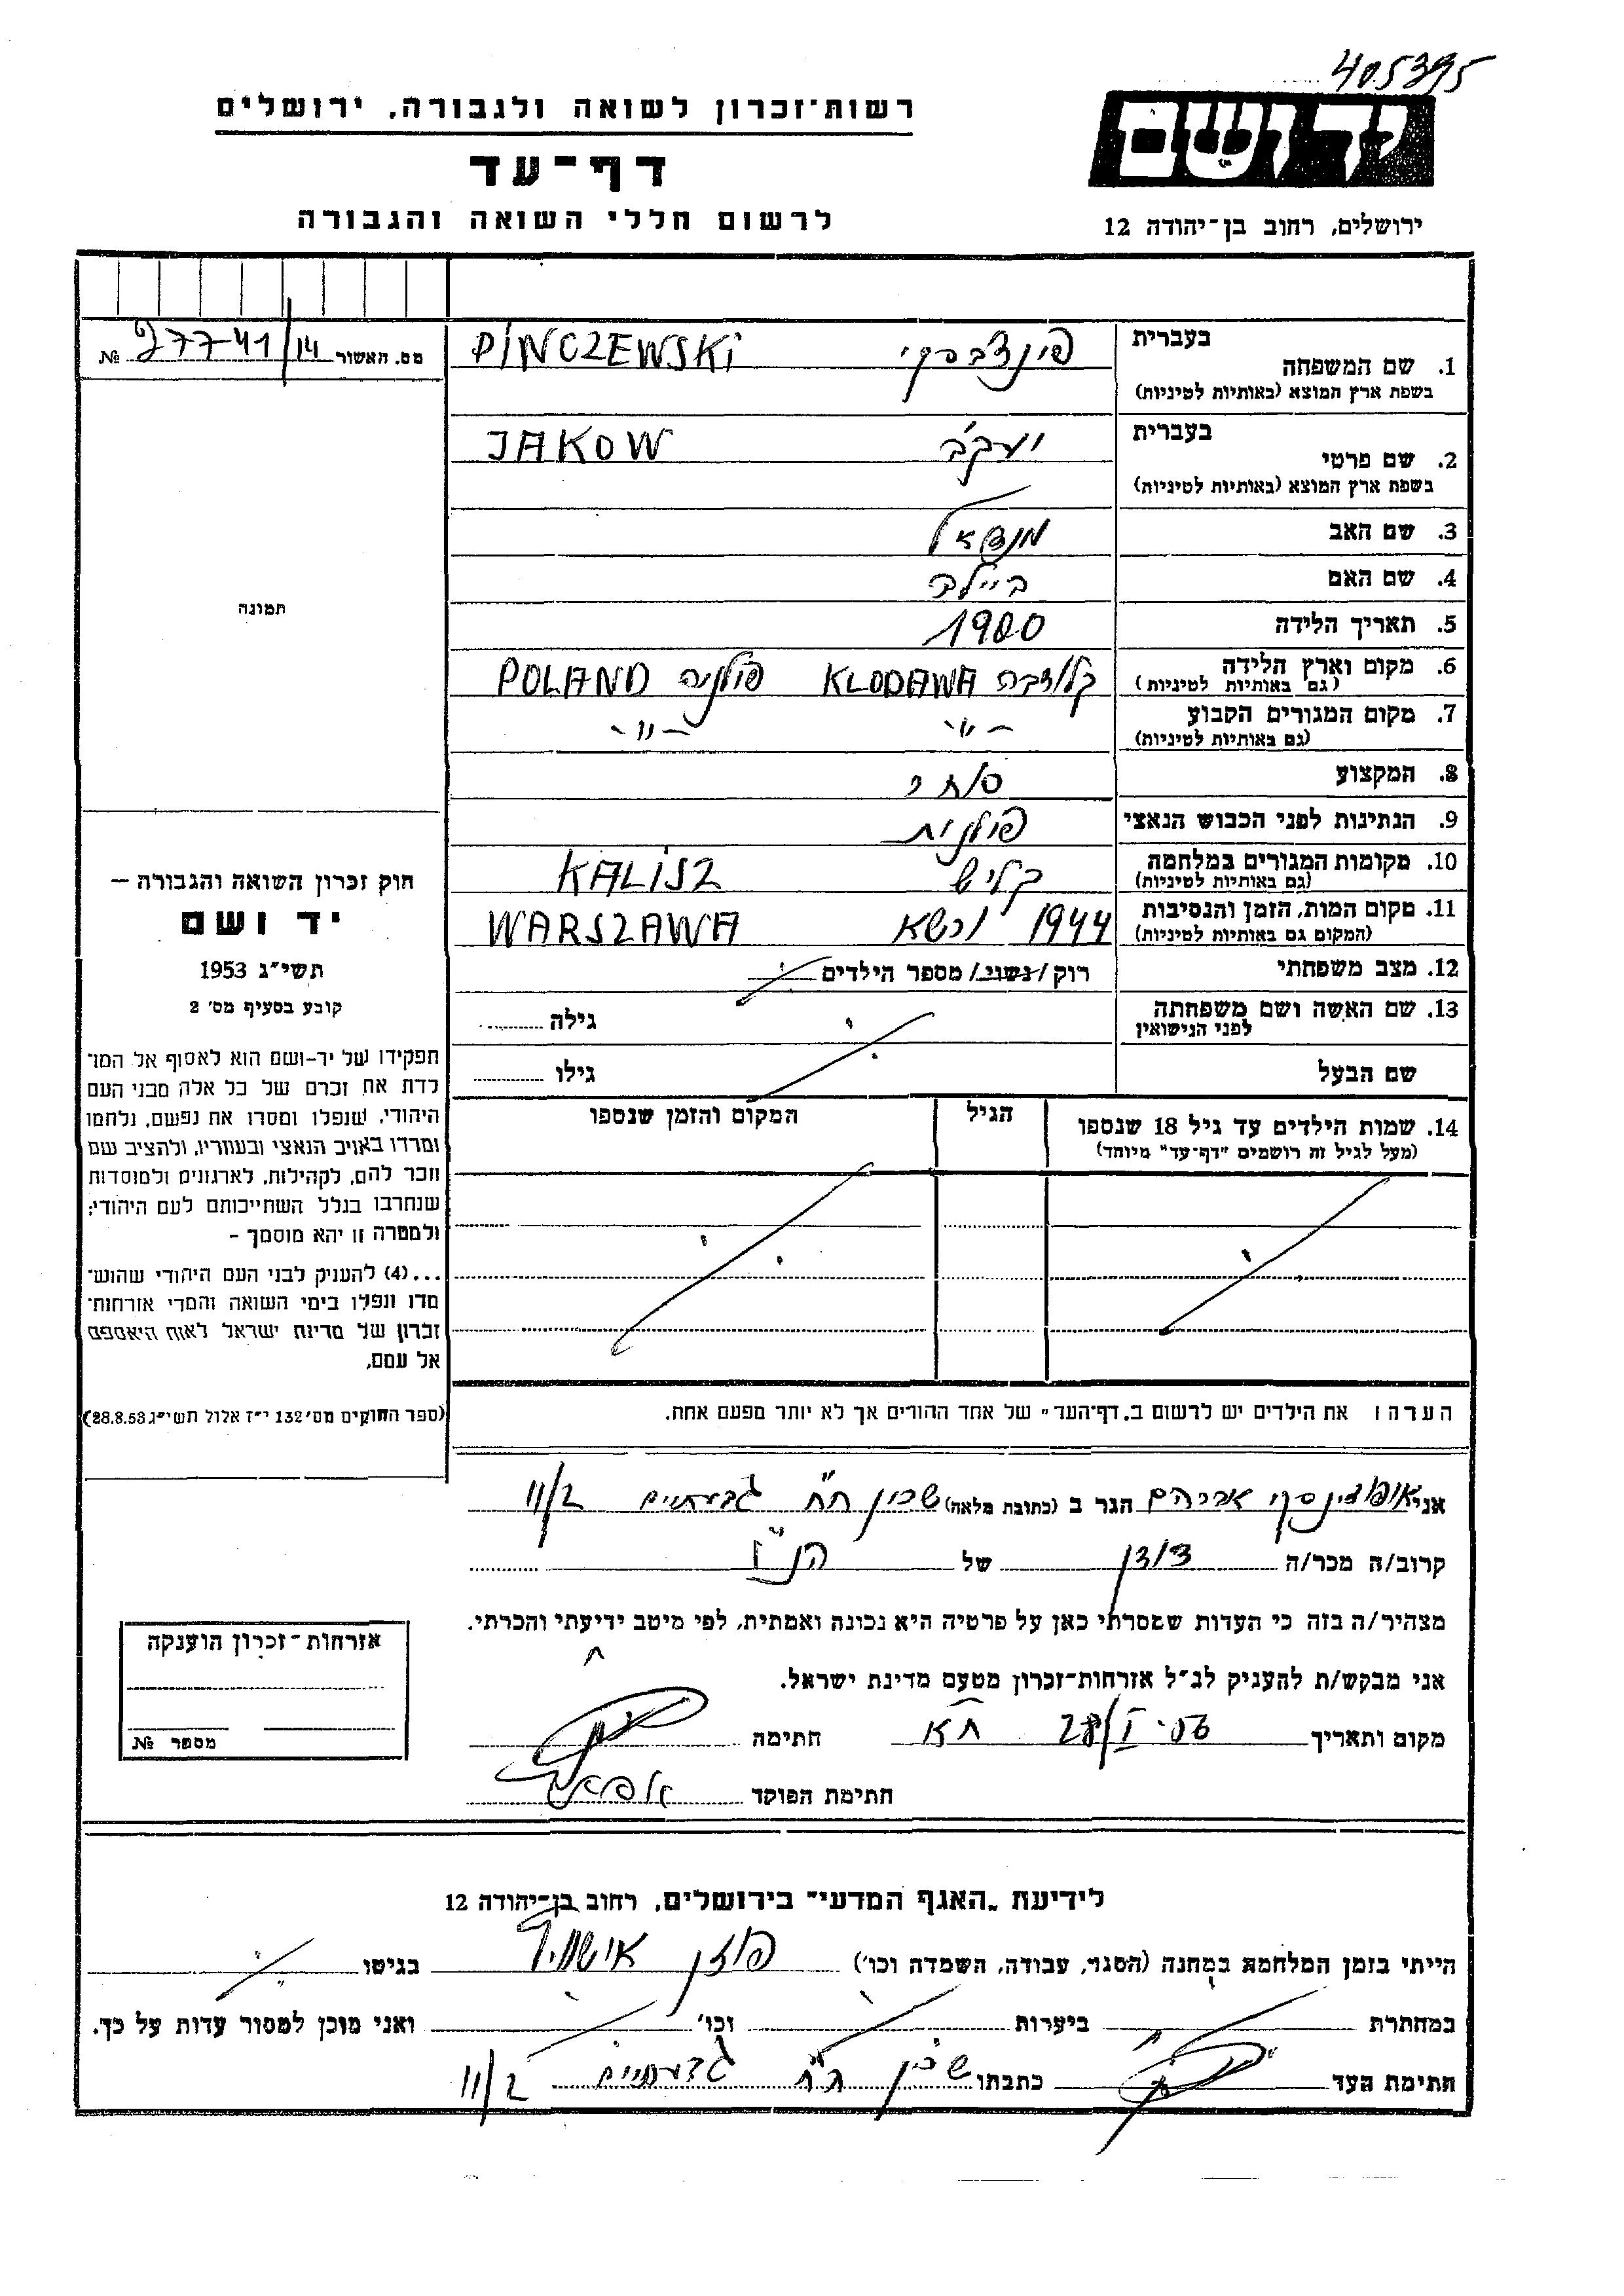 405395
רשות־זכרון לשואה ולגבורה, ירושלים
דף־עד
לרשום חללי השואה והגבורה
יד ושם
ירושלים, רחוב בן־יהודה 12
מס. האשור 27741/14 №
תמונה
חוק זכרון השואה והגבורה –
יד ושם
תשי״ג 1953
קובע בסעיף מס׳ 2
תפקידו של יד-ושם הוא לאסוף אל המו־
לדת את זכרם של כל אלה מבני העם
היהודי, שנפלו ומסרו את נפשם, נלחמו
ומרדו באויב הנאצי ובעוזריו, ולהציב שם
וזכר להם, לקהילות, לארגונים ולמוסדות
שנחרבו בגלל השתייכותם לעם היהודי;
ולמטרה זו יהא מוסמך –
...(4) להעניק לבני העם היהודי שהוש־
מדו ונפלו בימי השואה והמרי אזרחות־
זכרון של מדינת ישראל לאות היאספם
אל עמם.
(ספר החוקים מס׳ 132 י״ז אלול תשי״ג 28.8.53)
בעברית
1. שם המשפחה פינצ'בסקי PINCZEWSKI
בשפת ארץ המוצא (באותיות לטיניות)
בעברית
2. שם פרטי יעקב JAKOW
בשפת ארץ המוצא (באותיות לטיניות)
3. שם האב
4. שם האם ביילה
5. תאריך הלידה 1900
6. מקום וארץ הלידה קלודבה KLODAWA פולניה POLAND
(גם באותיות לטיניות)
7. מקום המגורים הקבוע -״- -״-
(גם באותיות לטיניות)
8. המקצוע סוחר
9. הנתינות לפני הכבוש הנאצי פולנית
10. מקומות המגורים במלחמה קליש KALISZ
(גם באותיות לטיניות)
11. מקום המות, הזמן והנסיבות 1944 ורשא WARSZAWA
(המקום גם באותיות לטיניות)
12. מצב משפחתי רוק/נשוי/מספר הילדים
13. שם האשה ושם משפחתה גילה
לפני הנישואין
שם הבעל גילו
14. שמות הילדים עד גיל 18 שנספו הגיל המקום והזמן שנספו
(מעל לגיל זה רושמים "דף־עד" מיוחד)
הערה: את הילדים יש לרשום ב„דף־העד״ של אחד ההורים אך לא יותר מפעם אחת.
אני אברהם הגר ב (כתובת מלאה) שכון ח״ח גבעתיים 11/2
קרוב/ה מכר/ה דודן של הנ״ל
מצהיר/ה בזה כי העדות שמסרתי כאן על פרטיה היא נכונה ואמתית, לפי מיטב ידיעתי והכרתי.
אני מבקש/ת להעניק לנ״ל אזרחות־זכרון מטעם מדינת ישראל.
מקום ותאריך ת״א 28/I.56 חתימה
חתימת הפוקד
אזרחות־זכרון הוענקה
מספר №
לידיעת „האגף המדעי״ בירושלים, רחוב בן־יהודה 12
הייתי בזמן המלחמה במחנה (הסגר, עבודה, השמדה וכו׳) פוזן אושויץ בגיטו
במחתרת ביערות וכו׳ ואני מוכן למסור עדות על כך.
חתימת העד כתבתו שכון ח״ח גבעתיים 11/2